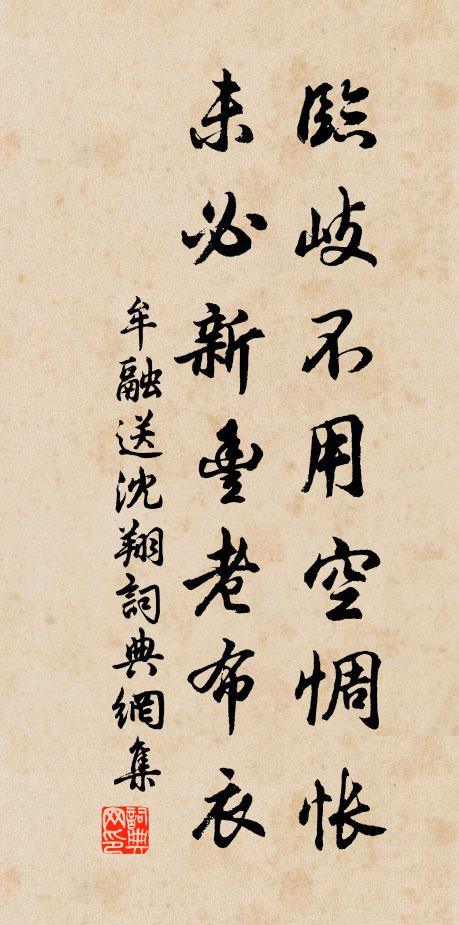 臨岐不用空惆悵
未必新豐老布衣
牟融送沈翔詞典網集
詞典網印